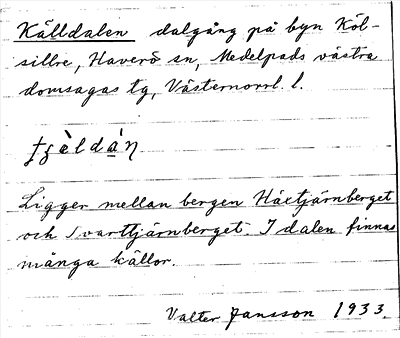 Källdalen dalgång på byn Köl-
sillre, Haverö sn, Medelpads västra
domsagas tg, Västernorrl. l.
Ligger mellan bergen Häxtjärnberget
och Svarttjärnberget. I dalen finnas
många källor.
Valter Jansson 1933.